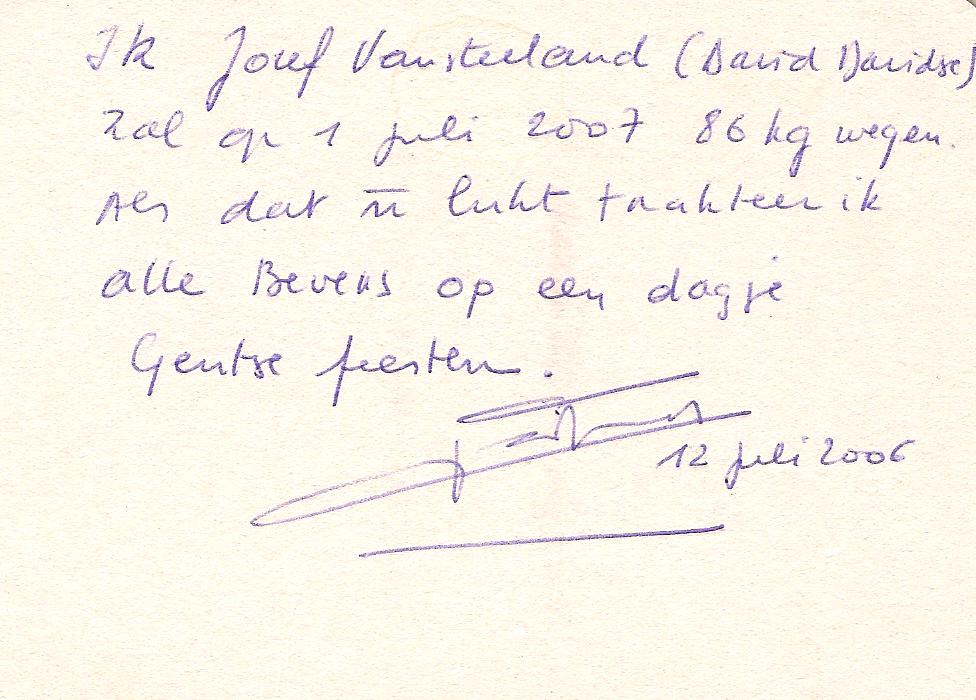 Ik Josef Vansteeland (David Davidse)
Zal op 1 juli 2007 86 kg wegen.
Als dat n̄ lukt trakteer ik
alle Bevers op een dagje
Gentse feesten.
12 juli 2006